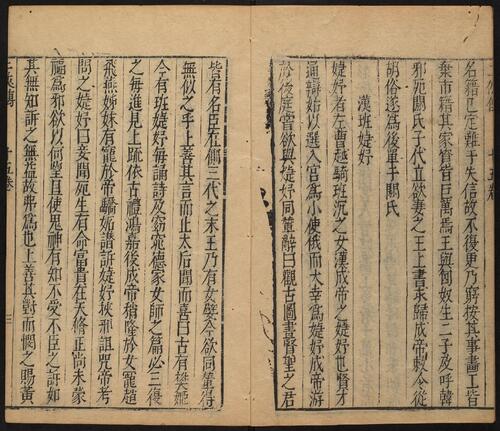 名籍已定難于失信故不復更乃窮按其事畫工皆
棄市籍其家貲皆巨萬爲王與匈奴生二子及呼韓
邪死閼氏子代立欲妻之王上書求歸成帝敕令從
胡俗逐爲後單于閼氏
漢班婕妤
婕妤者左曹越騎班況之女漢成帝之婕妤也賢才
通辯始以選入宮爲小使俄而大幸爲婕妤成帝游
於後庭嘗欲與婕妤同輦辭曰觀古圖畫賢聖之君
皆有名臣在側三代之末主乃有女嬖今欲同輦得
無似之乎上善其言而止太后聞而喜曰古有樊姬
今有班婕妤每誦詩及窈窕德家女師之篇必三復
之每進見上疏依古禮鴻嘉後成帝稍隆於女寵趙
飛燕姊妹有寵於帝驕妬譖訴婕妤挾邪詛咒帝考
問之婕妤曰妾聞死生有命富貴在天脩正尚未蒙
福爲邪欲以何望且使鬼神有知不受不臣之訴如
其無知訴之無益故弗爲也上善其對而憫之賜黃
三